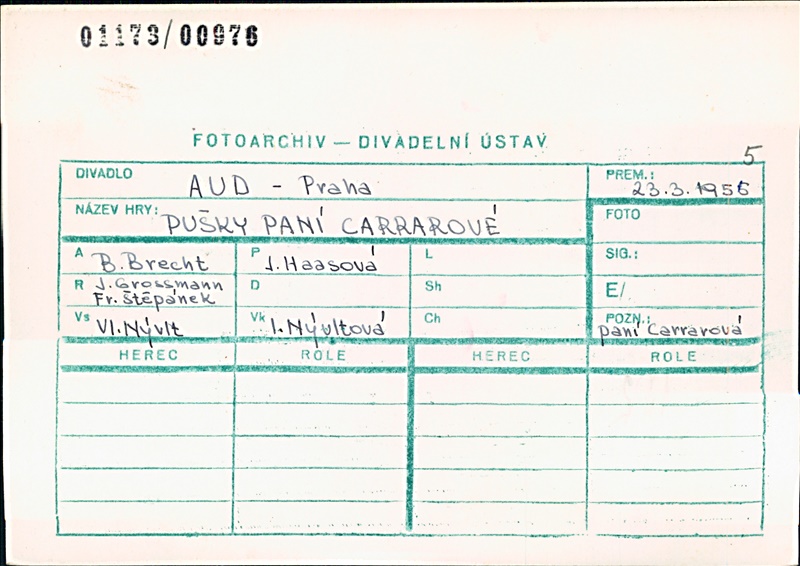 01173/00976
FOTOARCHIV — DIVADELNÍ ÚSTAV
5
DIVADLO AUD - Praha PREM.: 23.3.1956
NÁZEV HRY: PUŠKY PANÍ CARRAROVÉ FOTO
A B. Brecht P J. Haasová L SIG.:
R J. Grossmann
Fr. Štěpánek D Sh E/
Vs Vl. Nývlt Vk I. Nývltová Ch POZN.: paní Carrarová
HEREC ROLE HEREC ROLE